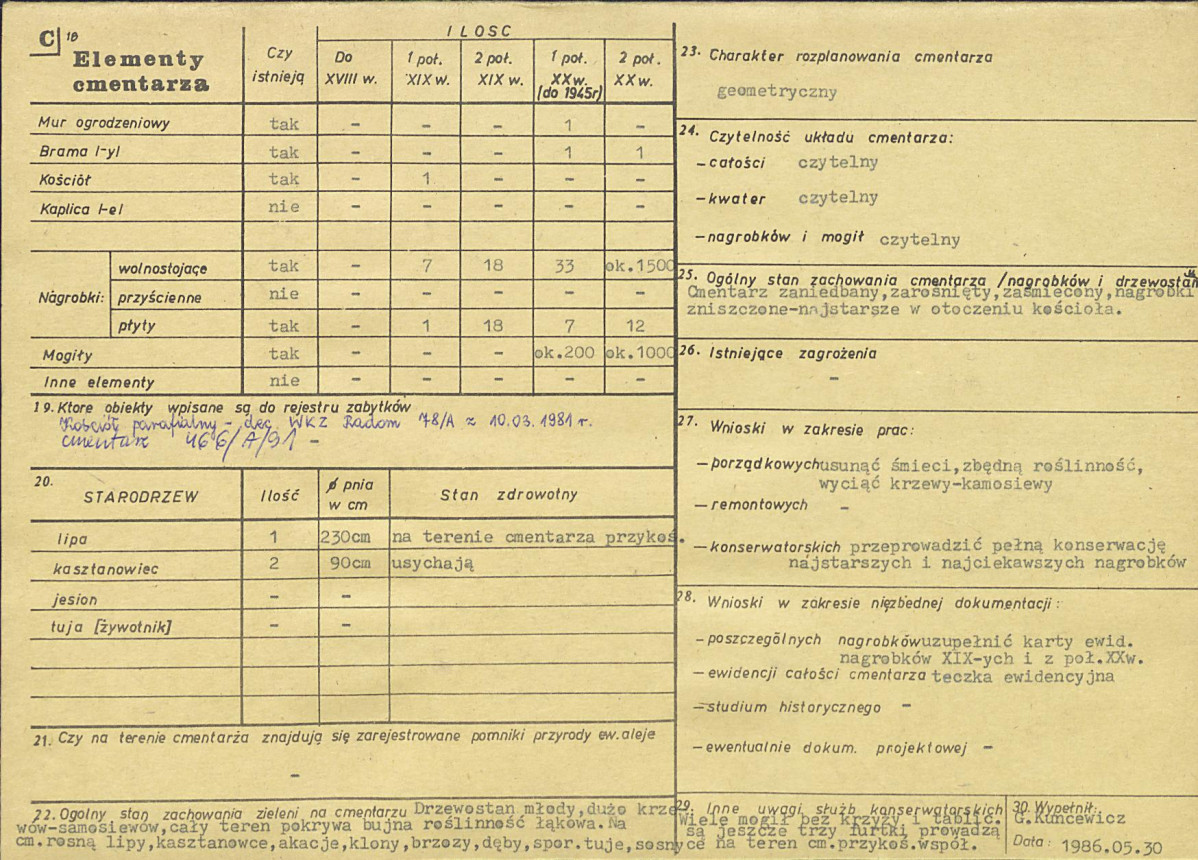 C 18
Elementy
cmentarza
Czy
istnieją
ILOSC
Do
XVIII w.
1 poł.
XIX w.
2 poł.
XIX w.
1 poł.
XX w.
(do 1945r)
2 poł.
XX w.
Mur ogrodzeniowy tak - - - 1 -
Brama /-y/ tak - - - 1 1
Kościół tak - 1 - - -
Kaplica /-e/ nie - - - - -
Nagrobki:
wolnostojące tak - 7 18 33 ok.1500
przyścienne nie - - - - -
płyty tak - 1 18 7 12
Mogiły tak - - - ok.200 ok.1000
Inne elementy nie - - - - -
19. Ktore obiekty wpisane są do rejestru zabytków
Kościół parafialny - dec. WKZ Radom 78/A z 10.03.1981 r.
cmentarz 466/A/91 -
20.
STARODRZEW
Ilość
ø pnia
w cm
Stan zdrowotny
lipa 1 230cm na terenie cmentarza przykoś.
kasztanowiec 2 90cm usychają
jesion - -
tuja [żywotnik] - -
21. Czy na terenie cmentarza znajdują się zarejestrowane pomniki przyrody ew. aleje
-
22. Ogolny stan zachowania zieleni na cmentarzu Drzewostan młody,dużo krze
wów-samosiewów,cały teren pokrywa bujna roślinność łąkowa.Na
cm.rosną lipy,kasztanowce,akacje,klony,brzozy,dęby,spor.tuje,sosny
23. Charakter rozplanowania cmentarza
geometryczny
24. Czytelność układu cmentarza:
- całości czytelny
- kwater czytelny
- nagrobków i mogił czytelny
25. Ogólny stan zachowania cmentarza /nagrobków i drzewostan
Cmentarz zaniedbany,zarośnięty,zaśmiecony,nagrobki
zniszczone-najstarsze w otoczeniu kościoła.
26. Istniejące zagrożenia
-
27. Wnioski w zakresie prac:
- porządkowych usunąć śmieci,zbędną roślinność,
wyciąć krzewy-kamosiewy
- remontowych -
- konserwatorskich przeprowadzić pełną konserwację
najstarszych i najciekawszych nagrobków
28. Wnioski w zakresie niezbednej dokumentacji:
- poszczególnych nagrobków uzupełnić karty ewid.
nagrobków XIX-ych i z poł.XXw.
- ewidencji całości cmentarza teczka ewidencyjna
- studium historycznego -
- ewentualnie dokum. projektowej -
29. Inne uwagi służb konserwatorskich
Wiele mogił bez krzyży i tablic.
są jeszcze trzy furtki prowadzą
ce na teren cm.przykoś.współ.
30. Wypełnił:
G.Kuncewicz
Data: 1986.05.30